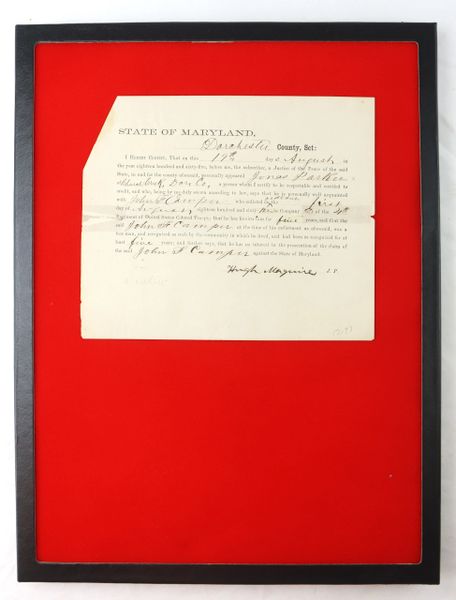 STATE OF MARYLAND,
Dorchester County, Sct:
I Hereby Certify, That on this 17th day of August in
the year eighteen hundred and sixty-five, before me, the subscriber, a Justice of the Peace of the said
State, in and for the county aforesaid, personally appeared Jonas Parker
Dor Co, a person whom I certify to be respectable and entitled to
credit, and who, being by me duly sworn according to law, says that he is personally well acquainted
with John F Camper who enlisted first
day of eighteen hundred and sixty Company of the 4th
Regiment of United States Colored Troops; that he has known him for five years, and that the
said John F Camper at the time of his enlistment as aforesaid, was a
free man, and recognized as such by the community in which he lived, and had been so recognized for at
least five years; and further says, that he has no interest in the prosecution of the claim
of the said John F Camper against the State of Maryland.
Hugh Maguire